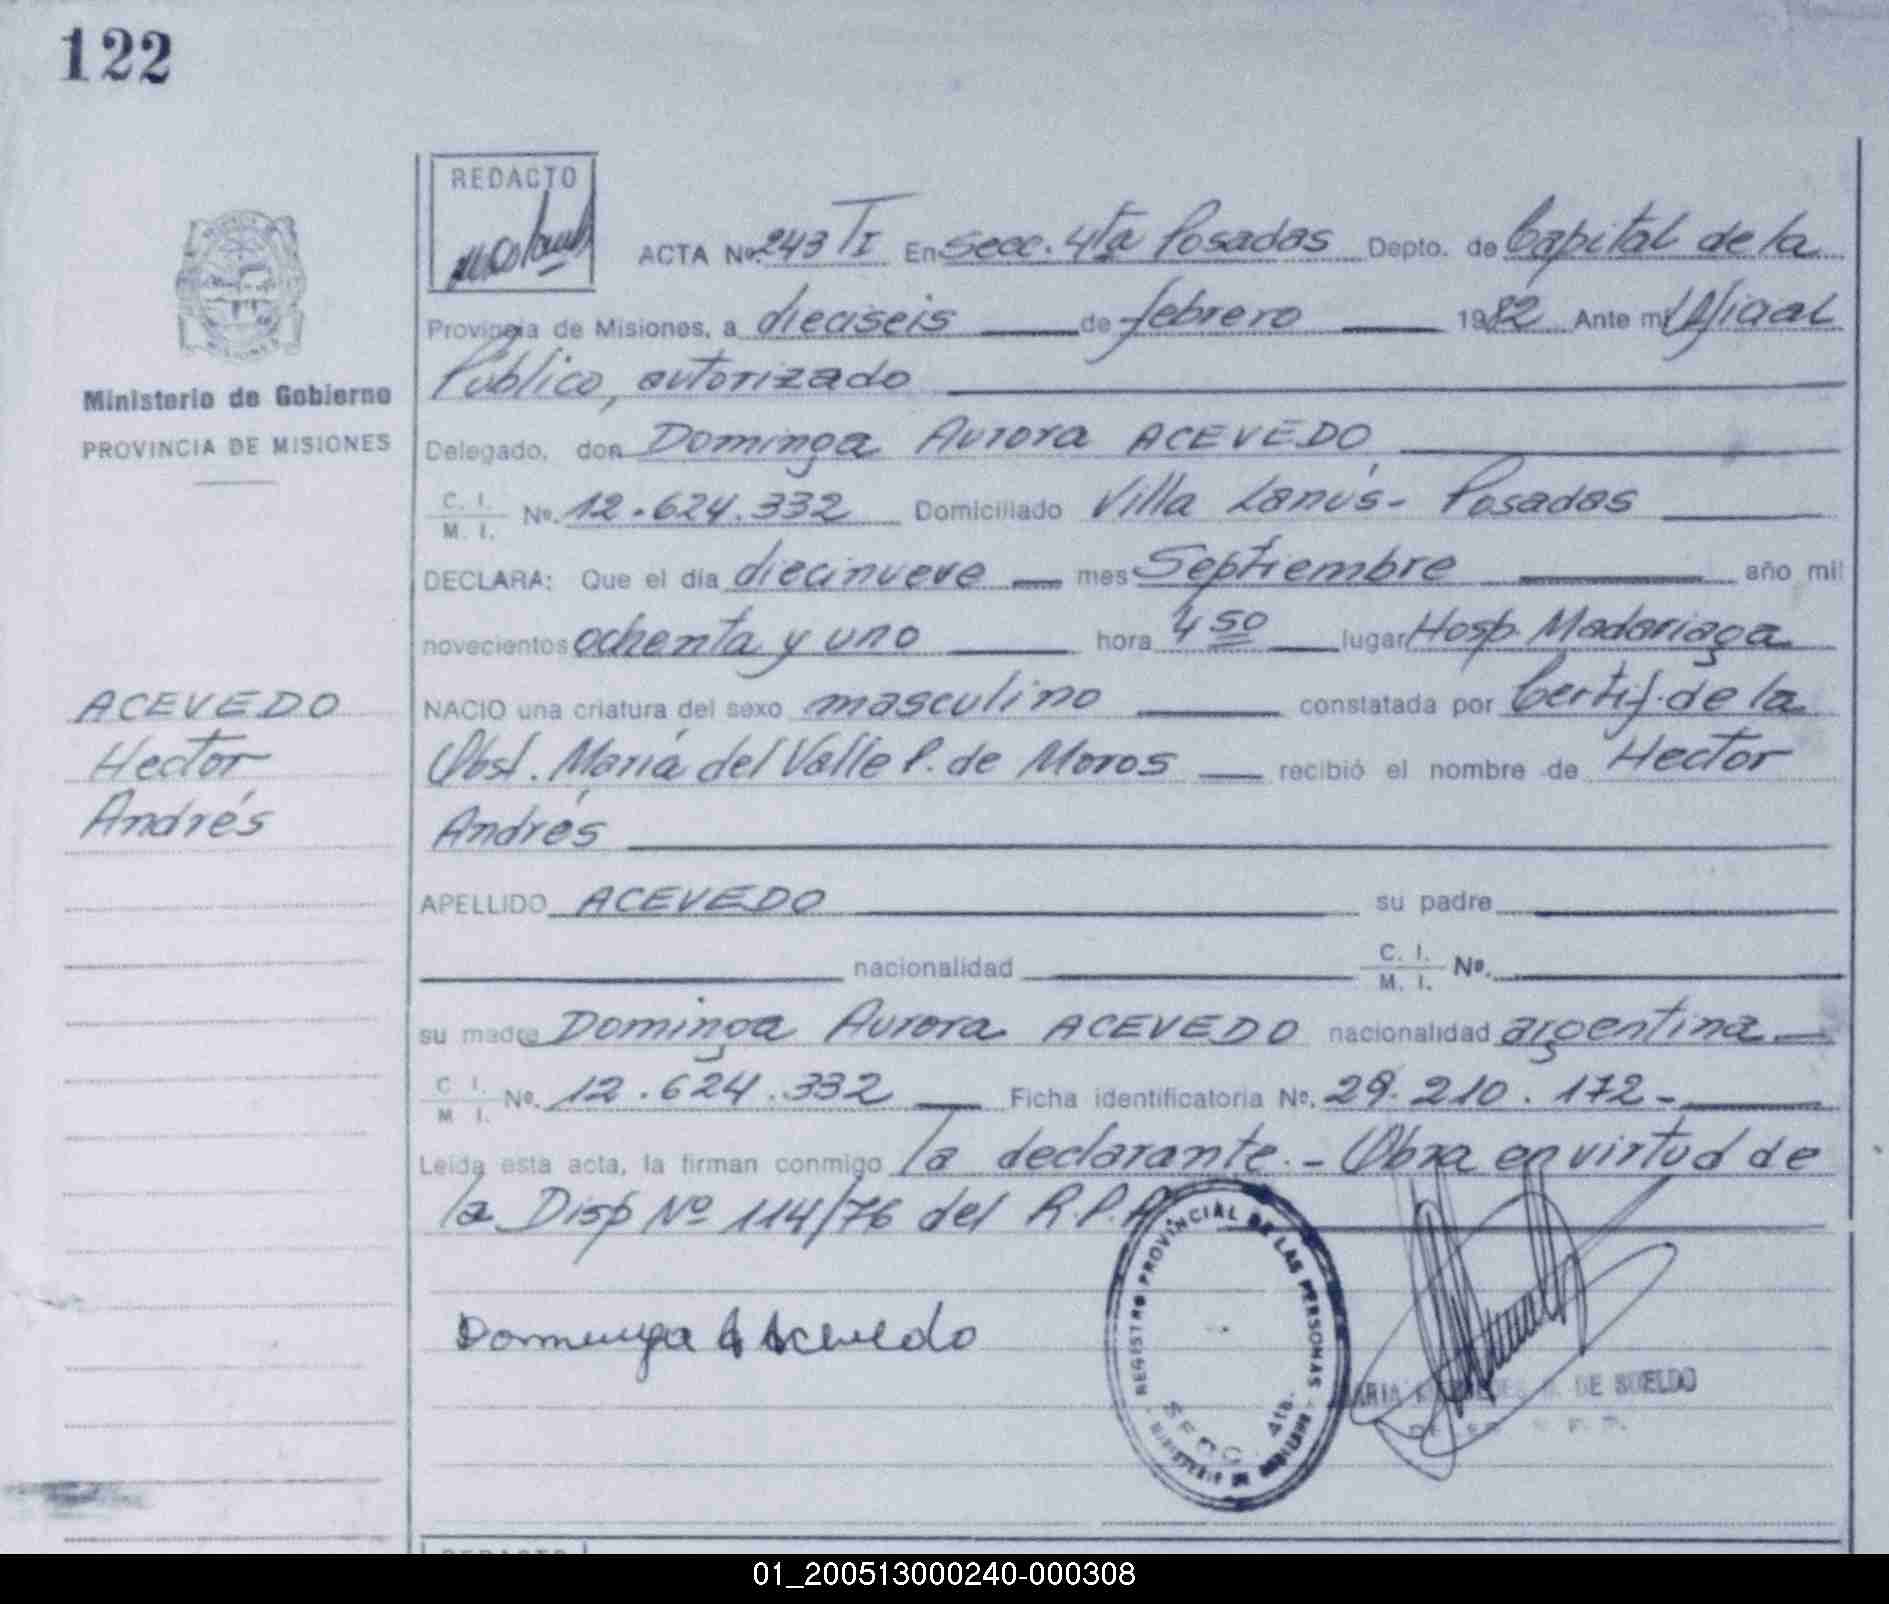 122
REDACTO
ACTA Nº 243 TI En Secc. 4ta Posadas Depto. de Capital de la
Provincia de Misiones, a dieciseis de febrero 1982 Ante mi Oficial
Público, autorizado
Ministerio de Gobierno
PROVINCIA DE MISIONES
Delegado, don Dominga Aurora ACEVEDO
C. I.
M. I. Nº. 12.624.332 Domiciliado Villa Lanús - Posadas
DECLARA: Que el día diecinueve mes Septiembre año mil
novecientos ochenta y uno hora 4 50 lugar Hosp. Madariaga
ACEVEDO
Hector
Andrés
NACIO una criatura del sexo masculino constatada por Certif. de la
Obst. María del Valle P. de Moros recibió el nombre de Hector
Andrés
APELLIDO ACEVEDO su padre
nacionalidad C. I.
M. I. Nº.
su madre Dominga Aurora ACEVEDO nacionalidad argentina
C. I.
M. I. Nº. 12.624.332 Ficha identificatoria Nº. 29.210.172-
Leída esta acta, la firman conmigo la declarante. - Obra en virtud de
la Disp Nº 114/76 del R.P.P.
REGISTRO PROVINCIAL DE LAS PERSONAS
SECC. 4ta.
MINISTERIO DE GOBIERNO
Dominga A Acevedo
DE SUELDO
REDACTO
01_200513000240-000308